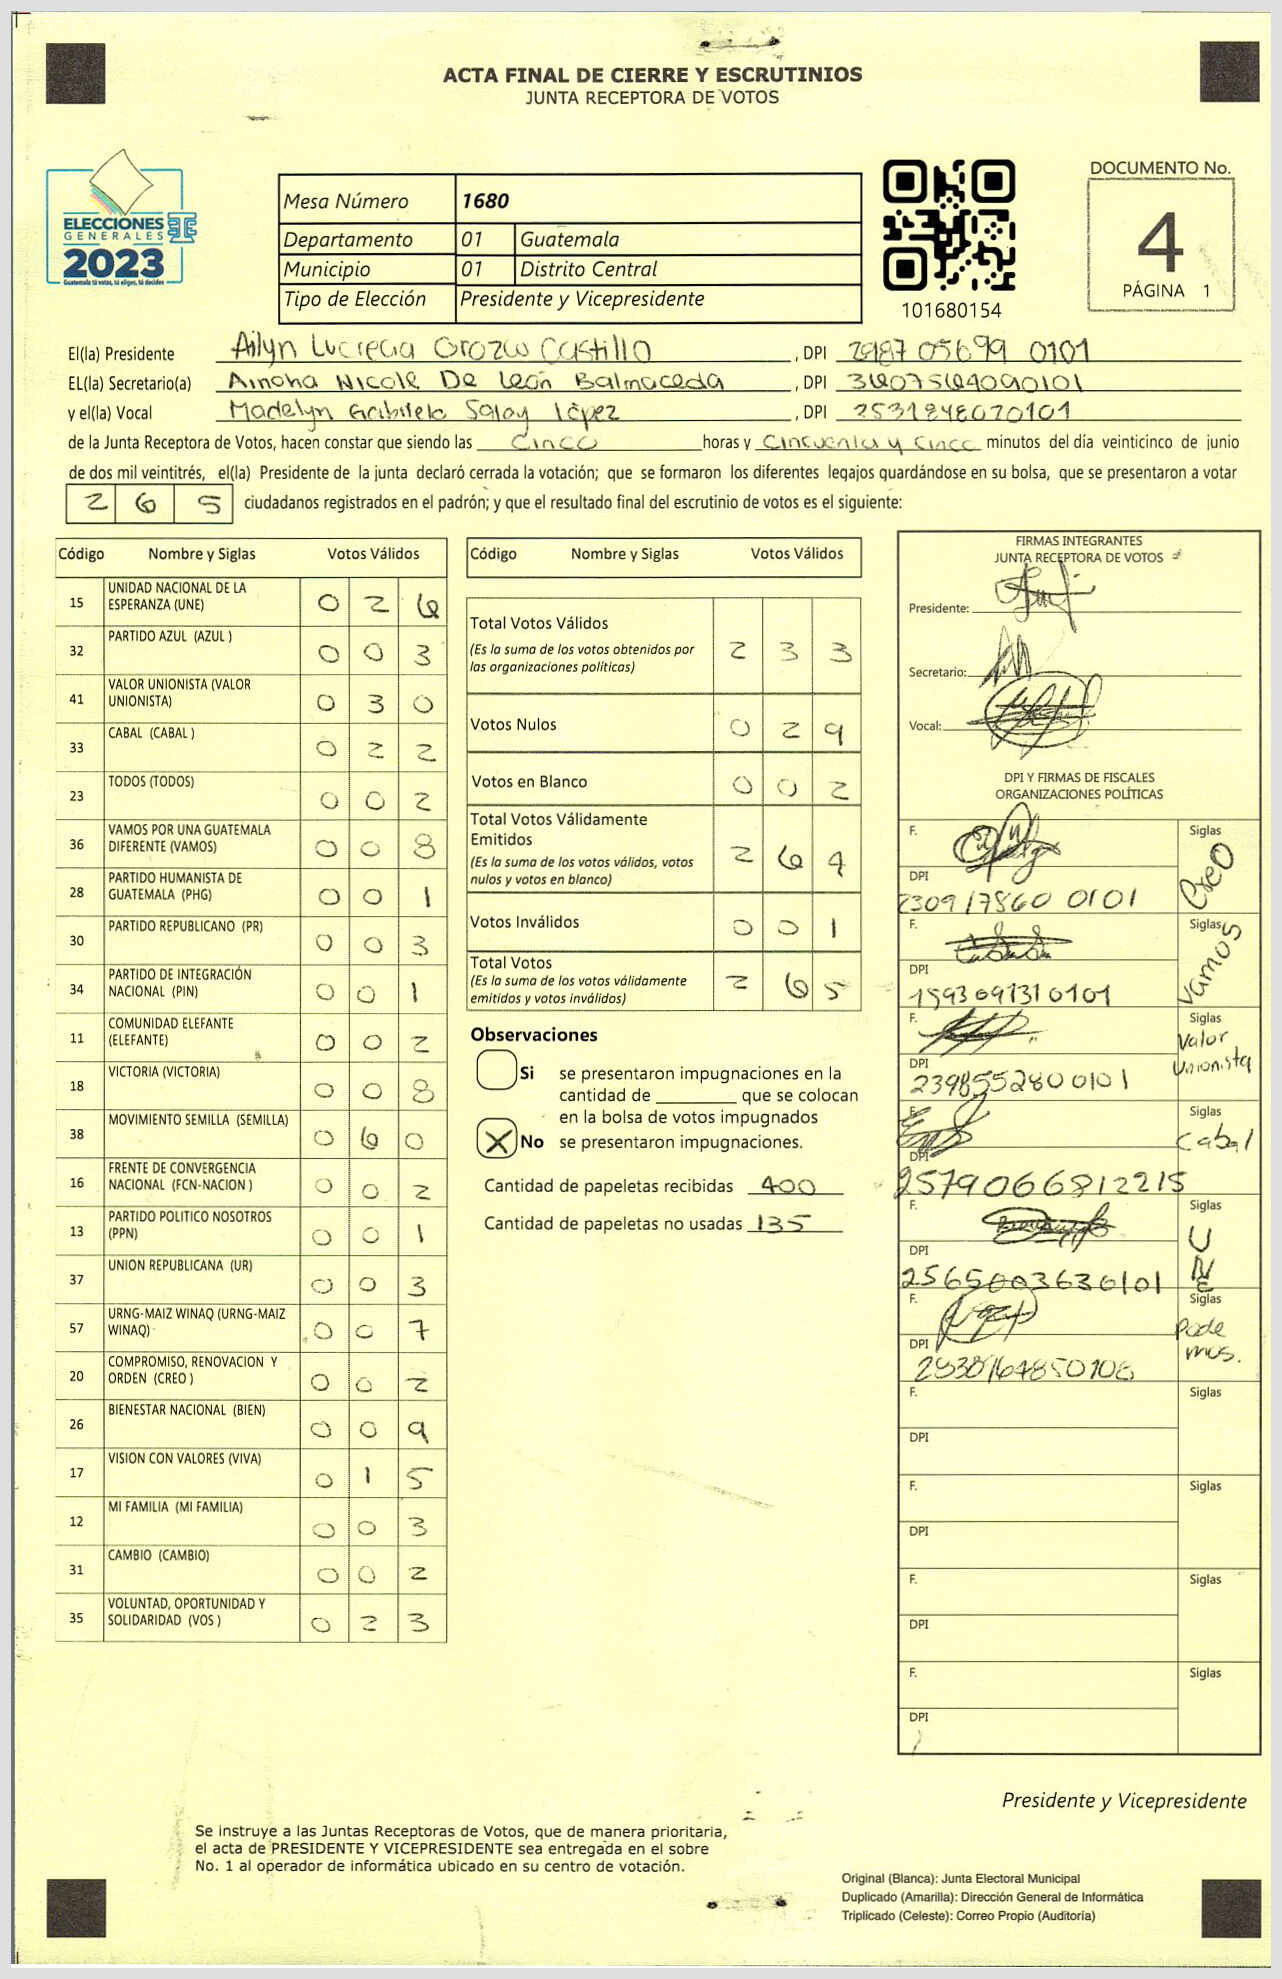 ACTA FINAL DE CIERRE Y ESCRUTINIOS
JUNTA RECEPTORA DE VOTOS
ELECCIONES
GENERALES
2023
Guatemala tú votas, tú eliges, tú decides
Mesa Número 1680
Departamento 01 Guatemala
Municipio 01 Distrito Central
Tipo de Elección Presidente y Vicepresidente
101680154
DOCUMENTO No.
4
PÁGINA 1
El(la) Presidente Ailyn Lucrecia Orozco Castillo, DPI 2987 05699 0101
EL(la) Secretario(a) Ainoha Nicole De León Balmaceda, DPI 3607564090101
y el(la) Vocal Madelyn Gabriela Salay López, DPI 2531848070101
de la Junta Receptora de Votos, hacen constar que siendo las cinco horas y cincuenta y cinco minutos del día veinticinco de junio
de dos mil veintitrés, el(la) Presidente de la junta declaró cerrada la votación; que se formaron los diferentes legajos quardándose en su bolsa, que se presentaron a votar
265 ciudadanos registrados en el padrón; y que el resultado final del escrutinio de votos es el siguiente:
Código Nombre y Siglas Votos Válidos
15 UNIDAD NACIONAL DE LA ESPERANZA (UNE) 0 2 6
32 PARTIDO AZUL (AZUL ) 0 0 3
41 VALOR UNIONISTA (VALOR UNIONISTA) 0 3 0
33 CABAL (CABAL ) 0 2 2
23 TODOS (TODOS) 0 0 2
36 VAMOS POR UNA GUATEMALA DIFERENTE (VAMOS) 0 0 8
28 PARTIDO HUMANISTA DE GUATEMALA (PHG) 0 0 1
30 PARTIDO REPUBLICANO (PR) 0 0 3
34 PARTIDO DE INTEGRACIÓN NACIONAL (PIN) 0 0 1
11 COMUNIDAD ELEFANTE (ELEFANTE) 0 0 2
18 VICTORIA (VICTORIA) 0 0 8
38 MOVIMIENTO SEMILLA (SEMILLA) 0 6 0
16 FRENTE DE CONVERGENCIA NACIONAL (FCN-NACION ) 0 0 2
13 PARTIDO POLITICO NOSOTROS (PPN) 0 0 1
37 UNION REPUBLICANA (UR) 0 0 3
57 URNG-MAIZ WINAQ (URNG-MAIZ WINAQ) 0 0 7
20 COMPROMISO, RENOVACION Y ORDEN (CREO ) 0 0 2
26 BIENESTAR NACIONAL (BIEN) 0 0 9
17 VISION CON VALORES (VIVA) 0 1 5
12 MI FAMILIA (MI FAMILIA) 0 0 3
31 CAMBIO (CAMBIO) 0 0 2
35 VOLUNTAD, OPORTUNIDAD Y SOLIDARIDAD (VOS ) 0 2 3
Código Nombre y Siglas Votos Válidos
Total Votos Válidos 2 3 3
(Es la suma de los votos obtenidos por
las organizaciones políticas)
Votos Nulos 0 2 9
Votos en Blanco 0 0 2
Total Votos Válidamente
Emitidos 2 6 4
(Es la suma de los votos válidos, votos
nulos y votos en blanco)
Votos Inválidos 0 0 1
Total Votos 2 6 5
(Es la suma de los votos válidamente
emitidos y votos inválidos)
Observaciones
Si se presentaron impugnaciones en la
cantidad de ________ que se colocan
en la bolsa de votos impugnados
X No se presentaron impugnaciones.
Cantidad de papeletas recibidas 400
Cantidad de papeletas no usadas 135
FIRMAS INTEGRANTES
JUNTA RECEPTORA DE VOTOS
Presidente:
Secretario:
Vocal:
DPI Y FIRMAS DE FISCALES
ORGANIZACIONES POLÍTICAS
F. Siglas Creo
DPI 230917860 0101
F. Siglas Vamos
DPI 1593091310101
F. Siglas Valor Unionista
DPI 2398552800101
F. Siglas Cabal
DPI 2579066812215
F. Siglas UNE
DPI 2565003630101
F. Siglas Pode mos.
DPI
F. Siglas
DPI
F. Siglas
DPI
F. Siglas
DPI
F. Siglas
DPI
Presidente y Vicepresidente
Se instruye a las Juntas Receptoras de Votos, que de manera prioritaria,
el acta de PRESIDENTE Y VICEPRESIDENTE sea entregada en el sobre
No. 1 al operador de informática ubicado en su centro de votación.
Original (Blanca): Junta Electoral Municipal
Duplicado (Amarilla): Dirección General de Informática
Triplicado (Celeste): Correo Propio (Auditoría)